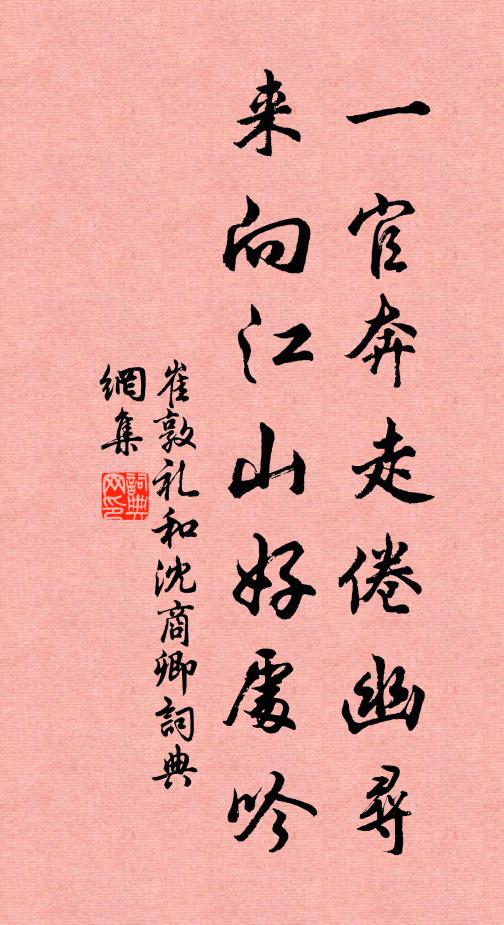 一官奔走倦幽尋
来向江山好處吟
崔敦礼和沈商卿詞典
網集
詞典
网印